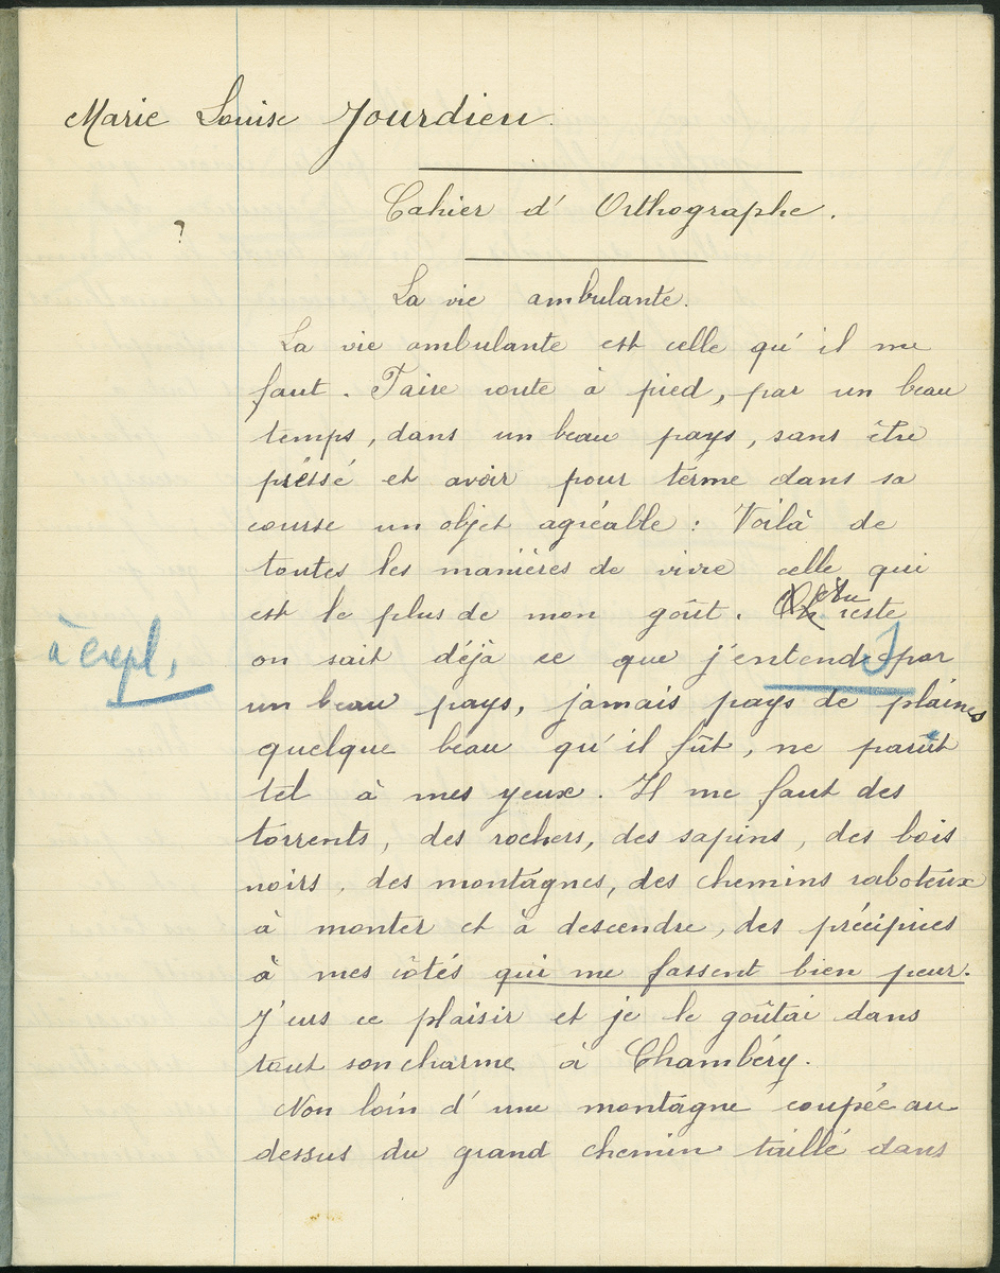 Marie Louise Jourdieu.
Cahier d' Orthographe.
?
La vie ambulante.
La vie ambulante est celle qu'il me
faut. Faire route à pied, par un beau
temps, dans un beau pays, sans être
préssé et avoir pour terme dans sa
course un objet agréable : Voilà de
toutes les manières de vivre celle qui
est le plus de mon goût. Au reste
à expl,
on sait déjà ce que j'entends par
un beau pays, jamais pays de plaines
quelque beau qu'il fût, ne parût
tel à mes yeux. Il me faut des
torrents, des rochers, des sapins, des bois
noirs, des montagnes, des chemins raboteux
à monter et à descendre, des précipices
à mes côtés qui me fassent bien peur.
J'eus ce plaisir et je le goûtai dans
tout son charme à Chambéry.
Non loin d'une montagne coupée au
dessus du grand chemin taillé dans